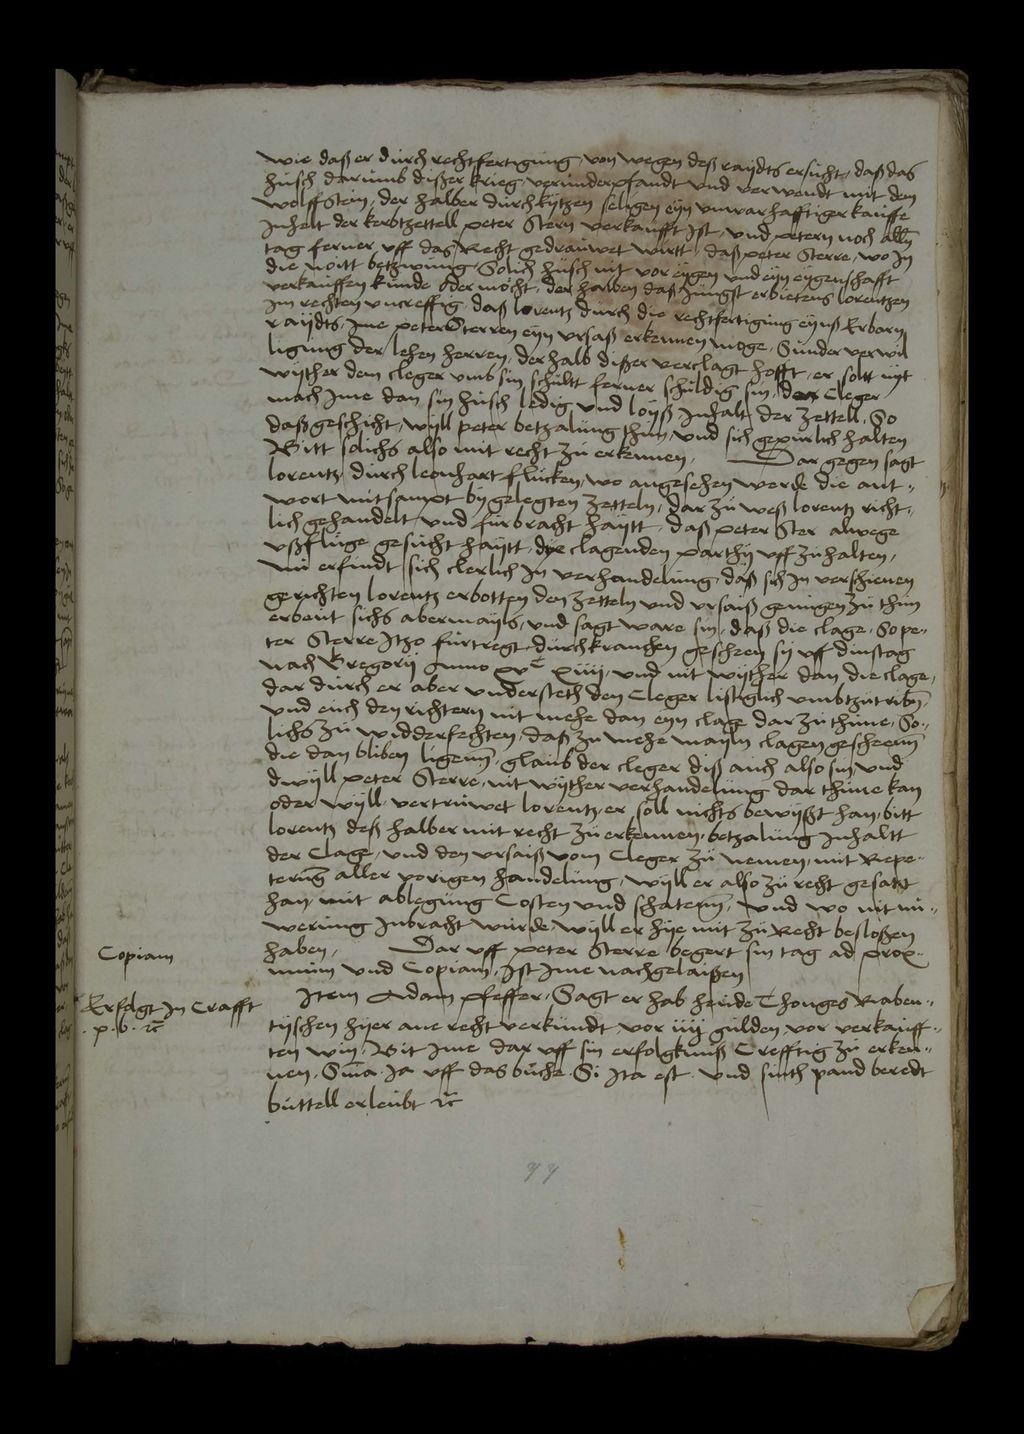 wie daß er durch rechtfertigung von wegen deß raydts ersucht, daß das
husch darumb dißer krieg verunderpfandt und verwendt mit den
wolffstein, der halber durch kytzen selgen eyn unwarhafftiger kauffe
Inhalt der kerbtzettell peter Stern verkaufft ist, und petern noch alln
tag ferner uff das Recht gedrauwet wirtt, daß peter Sterre, wo In
die noitt betzwung, Solich husch nit vor eygen und eyn eygenschafft
verkauffen kunde oder mocht, der halben daß Jungst erbietens lorentzen
im rechten uncreffig, daß lorentz durch die rechtfertigung eynß Erbarn
raydts, Ime peter Sterren eyn ursaß erkennen moge, Sunder verwil
ligung der lehen herren, der halb dißer verclagt hofft, er soll nyt
wyther dem cleger umb sin schultt ferner schuldig sin, der Cleger
mach Ime dan sin husch ledig und loyß Inhalt der zettell, So
daß geschicht, wyll peter betzalung thun, und sich gepurlich halten
Bitt solichs also mit recht zu erkennen. Dar gegen sagt
lorentz durch leonhart flucken, wo angesehen werde die ant-
wort mitsampt by gelegten zetteln, dar zu weß lorentz richt-
lich gehandelt und furbracht haytt, daß peter Ster alwege
ußfluge gesucht haytt, dye clagenden parthy uff zu halten,
nu erfindt sich clerlich In verhandelung, daß sich In verschienen
gerichten lorentz erbotten den zetteln und ursaiß genugen zu thun
erbeut sichs abermayls, und sagt ware sin, daß die clage, So pe-
ter Sterre Itzo furtregt, durch kranchen gescheen sy uff dinstag
nach Gregorij Anno xvc xiiij, und nit wyther dan die clage,
dar durch er aber understeth den Cleger listiglich umbtzutribn
und euch den richtern nit mehe dan eyn clage dar zu thune, So-
lichs zu widderfechten, daß zu mehe mayln clagen gescheenn
die dan bliben ligenn, glaub der cleger diß auch also sin, und
dwyll peter Sterre, nit wyther verhandelung dar thune kan
oder wyll, vertruwet lorentz, er soll nichs bewyßt han, bitt
lorentz deß halber mit recht zu erkennen, betzalung Inhaltt
der Clage, und den ursaiß vom Cleger zu nemen, mit Repe-
terung aller vorigen handelung, wyll er also zu recht gesatzt
han, mit ablegung Costen und schatenn, und wo nit nu-
werung Inbracht wurde, wyll er hye mit zu Recht besloßen
haben. Dar uff peter Sterre begert sin tag ad prox-
mum und Copiam, Ist Ime nachgelaißen
Copiam
Item Adam pfeffer, Sagt er hab heude Thonges Raben-
tyschen hyer ane recht verkundt vor iiij gulden vor verkauff-
ten win, Bit Ime dar uff sin erfolgkniß Crefftig zu erken-
nen. Sma. Ja uff das buche. Si Ita est. und sinth pand beredt
buttell erleubt ꝛc
Erfolgt In Crafft
. p . b . ꝛc